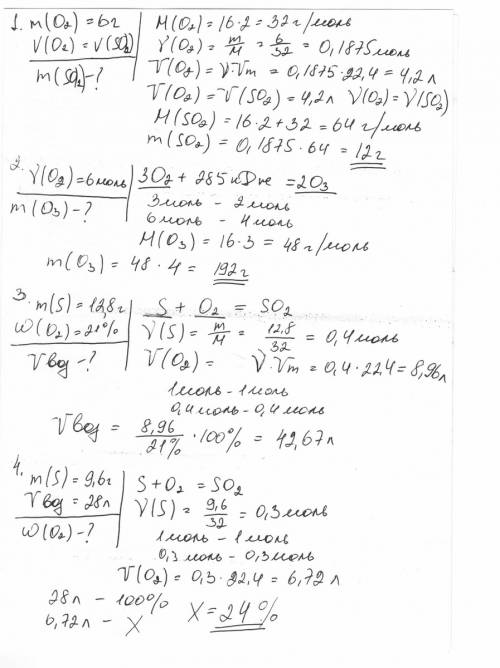 1. m(O₂) = 6г
V(O₂) = V(SO₂)
m(SO₂) - ?
M(O₂) = 16·2 = 32 г/моль
ν(O₂) = m/M = 6/32 = 0,1875 моль
V(O₂) = ν·Vm = 0,1875·22,4 = 4,2 л
V(O₂) = V(SO₂) = 4,2 л ν(O₂) = ν(SO₂)
M(SO₂) = 16·2 + 32 = 64 г/моль
m(SO₂) = 0,1875·64 = 12 г
2. ν(O₂) = 6 моль
m(O₃) - ?
3O₂ + 285 кДж = 2O₃
3 моль - 2 моль
6 моль - 4 моль
M(O₃) = 16·3 = 48 г/моль
m(O₃) = 48·4 = 192 г
3. m(S) = 12,8 г
W(O₂) = 21%
V воз - ?
S + O₂ = SO₂
ν(S) = m/M = 12,8/32 = 0,4 моль
V(O₂) = ν·Vm = 0,4·22,4 = 8,96 л
1 моль - 1 моль
0,4 моль - 0,4 моль
V воз = 8,96/21% ·100% = 42,67 л
4. m(S) = 9,6 г
V воз = 28 л
W(O₂) - ?
S + O₂ = SO₂
ν(S) = 9,6/32 = 0,3 моль
1 моль - 1 моль
0,3 моль - 0,3 моль
V(O₂) = 0,3·22,4 = 6,72 л
28 л - 100%
6,72 л - X X = 24%